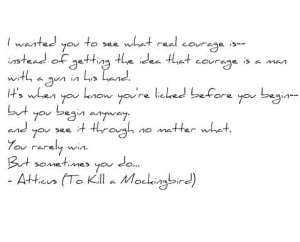 I wanted you to see what real courage is--
instead of getting the idea that courage is a man
with a gun in his hand.
It's when you know you're licked before you begin--
but you begin anyway.
and you see it through no matter what.
You rarely win.
But sometimes you do...
- Atticus (To Kill a Mockingbird)